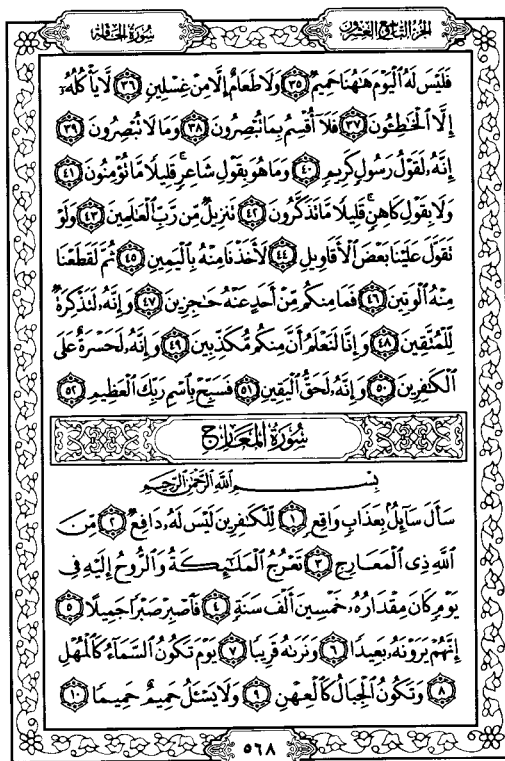 سُورَةُ الحَاقَّةِ
الجُزءُ التَّاسِعُ وَالعِشرُونَ
فَلَيْسَ لَهُ ٱلْيَوْمَ هَٰهُنَا حَمِيمٌ ٣٥ وَلَا طَعَامٌ إِلَّا مِنْ غِسْلِينٍ ٣٦ لَّا يَأْكُلُهُۥٓ
إِلَّا ٱلْخَٰطِـُٔونَ ٣٧ فَلَآ أُقْسِمُ بِمَا تُبْصِرُونَ ٣٨ وَمَا لَا تُبْصِرُونَ ٣٩
إِنَّهُۥ لَقَوْلُ رَسُولٍ كَرِيمٍ ٤٠ وَمَا هُوَ بِقَوْلِ شَاعِرٍ ۚ قَلِيلًا مَّا تُؤْمِنُونَ ٤١
وَلَا بِقَوْلِ كَاهِنٍ ۚ قَلِيلًا مَّا تَذَكَّرُونَ ٤٢ تَنزِيلٌ مِّن رَّبِّ ٱلْعَٰلَمِينَ ٤٣ وَلَوْ
تَقَوَّلَ عَلَيْنَا بَعْضَ ٱلْأَقَاوِيلِ ٤٤ لَأَخَذْنَا مِنْهُ بِٱلْيَمِينِ ٤٥ ثُمَّ لَقَطَعْنَا
مِنْهُ ٱلْوَتِينَ ٤٦ فَمَا مِنكُم مِّنْ أَحَدٍ عَنْهُ حَٰجِزِينَ ٤٧ وَإِنَّهُۥ لَتَذْكِرَةٌ
لِّلْمُتَّقِينَ ٤٨ وَإِنَّا لَنَعْلَمُ أَنَّ مِنكُم مُّكَذِّبِينَ ٤٩ وَإِنَّهُۥ لَحَسْرَةٌ عَلَى
ٱلْكَٰفِرِينَ ٥٠ وَإِنَّهُۥ لَحَقُّ ٱلْيَقِينِ ٥١ فَسَبِّحْ بِٱسْمِ رَبِّكَ ٱلْعَظِيمِ ٥٢
سُورَةُ المَعَارِجِ
بِسْمِ ٱللَّهِ ٱلرَّحْمَٰنِ ٱلرَّحِيمِ
سَأَلَ سَآئِلٌۢ بِعَذَابٍ وَاقِعٍ ١ لِّلْكَٰفِرِينَ لَيْسَ لَهُۥ دَافِعٌ ٢ مِّنَ
ٱللَّهِ ذِى ٱلْمَعَارِجِ ٣ تَعْرُجُ ٱلْمَلَٰٓئِكَةُ وَٱلرُّوحُ إِلَيْهِ فِى
يَوْمٍ كَانَ مِقْدَارُهُۥ خَمْسِينَ أَلْفَ سَنَةٍ ٤ فَٱصْبِرْ صَبْرًا جَمِيلًا ٥
إِنَّهُمْ يَرَوْنَهُۥ بَعِيدًا ٦ وَنَرَىٰهُ قَرِيبًا ٧ يَوْمَ تَكُونُ ٱلسَّمَآءُ كَٱلْمُهْلِ
٨ وَتَكُونُ ٱلْجِبَالُ كَٱلْعِهْنِ ٩ وَلَا يَسْـَٔلُ حَمِيمٌ حَمِيمًا ١٠
٥٦٨